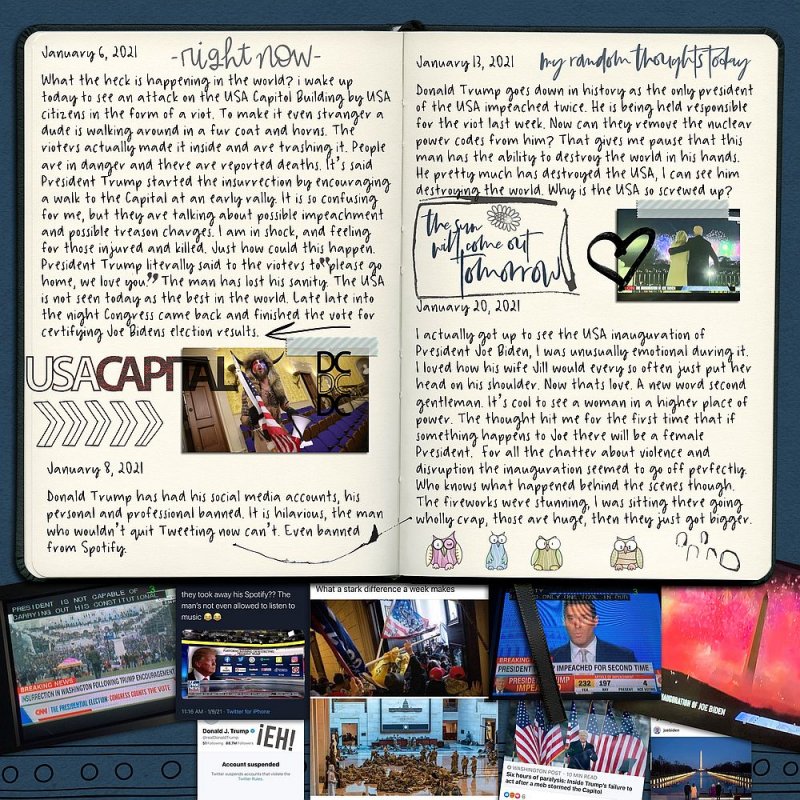 January 6, 2021
-right now-
What the heck is happening in the world? i wake up
today to see an attack on the USA Capitol Building by USA
citizens in the form of a riot. To make it even stranger a
dude is walking around in a fur coat and horns. The
rioters actually made it inside and are trashing it. People
are in danger and there are reported deaths. It's said
President Trump started the insurrection by encouraging
a walk to the Capital at an early rally. It is so confusing
for me, but they are talking about possible impeachment
and possible treason charges. I am in shock, and feeling
for those injured and killed. Just how could this happen.
President Trump literally said to the rioters to "please go
home, we love you." The man has lost his sanity. The USA
is not seen today as the best in the world. Late late into
the night Congress came back and finished the vote for
certifying Joe Bidens election results.
USACAPITAL
DC
DC
DC
January 8, 2021
Donald Trump has had his social media accounts, his
personal and professional banned. It is hilarious, the man
who wouldn't quit Tweeting now can't. Even banned
from Spotify.
January 13, 2021
my random thoughts today
Donald Trump goes down in history as the only president
of the USA impeached twice. He is being held responsible
for the riot last week. Now can they remove the nuclear
power codes from him? That gives me pause that this
man has the ability to destroy the world in his hands.
He pretty much has destroyed the USA, I can see him
destroying the world. Why is the USA so screwed up?
the sun
will come out
tomorrow
January 20, 2021
I actually got up to see the USA inauguration of
President Joe Biden, I was unusually emotional during it.
I loved how his wife Jill would every so often just put her
head on his shoulder. Now thats love. A new word second
gentleman. It's cool to see a woman in a higher place of
power. The thought hit me for the first time that if
something happens to Joe there will be a female
President. For all the chatter about violence and
disruption the inauguration seemed to go off perfectly.
Who knows what happened behind the scenes though.
The fireworks were stunning, I was sitting there going
wholly crap, those are huge, then they just got bigger.
PRESIDENT IS NOT CAPABLE OF
CARRYING OUT HIS CONSTITUTIONAL
BREAKING NEWS
INSURRECTION IN WASHINGTON FOLLOWING TRUMP ENCOURAGEMENT
CNN THE PRESIDENTIAL ELECTION: CONGRESS COUNTS THE VOTE
they took away his Spotify?? The
man's not even allowed to listen to
music
11:16 AM · 1/8/21 · Twitter for iPhone
What a stark difference a week makes
BREAKING
PRESIDENT IMPEACHED FOR SECOND TIME
PRESIDENT TRUMP
232 197
YEA NAY
INAUGURATION OF JOE BIDEN
Donald J. Trump
@realDonaldTrump
51 Following 88.7M Followers
¡EH!
Account suspended
Twitter suspends accounts that violate the
Twitter Rules.
WASHINGTON POST · 10 MIN READ
Six hours of paralysis: Inside Trump's failure to
act after a mob stormed the Capitol
joebiden